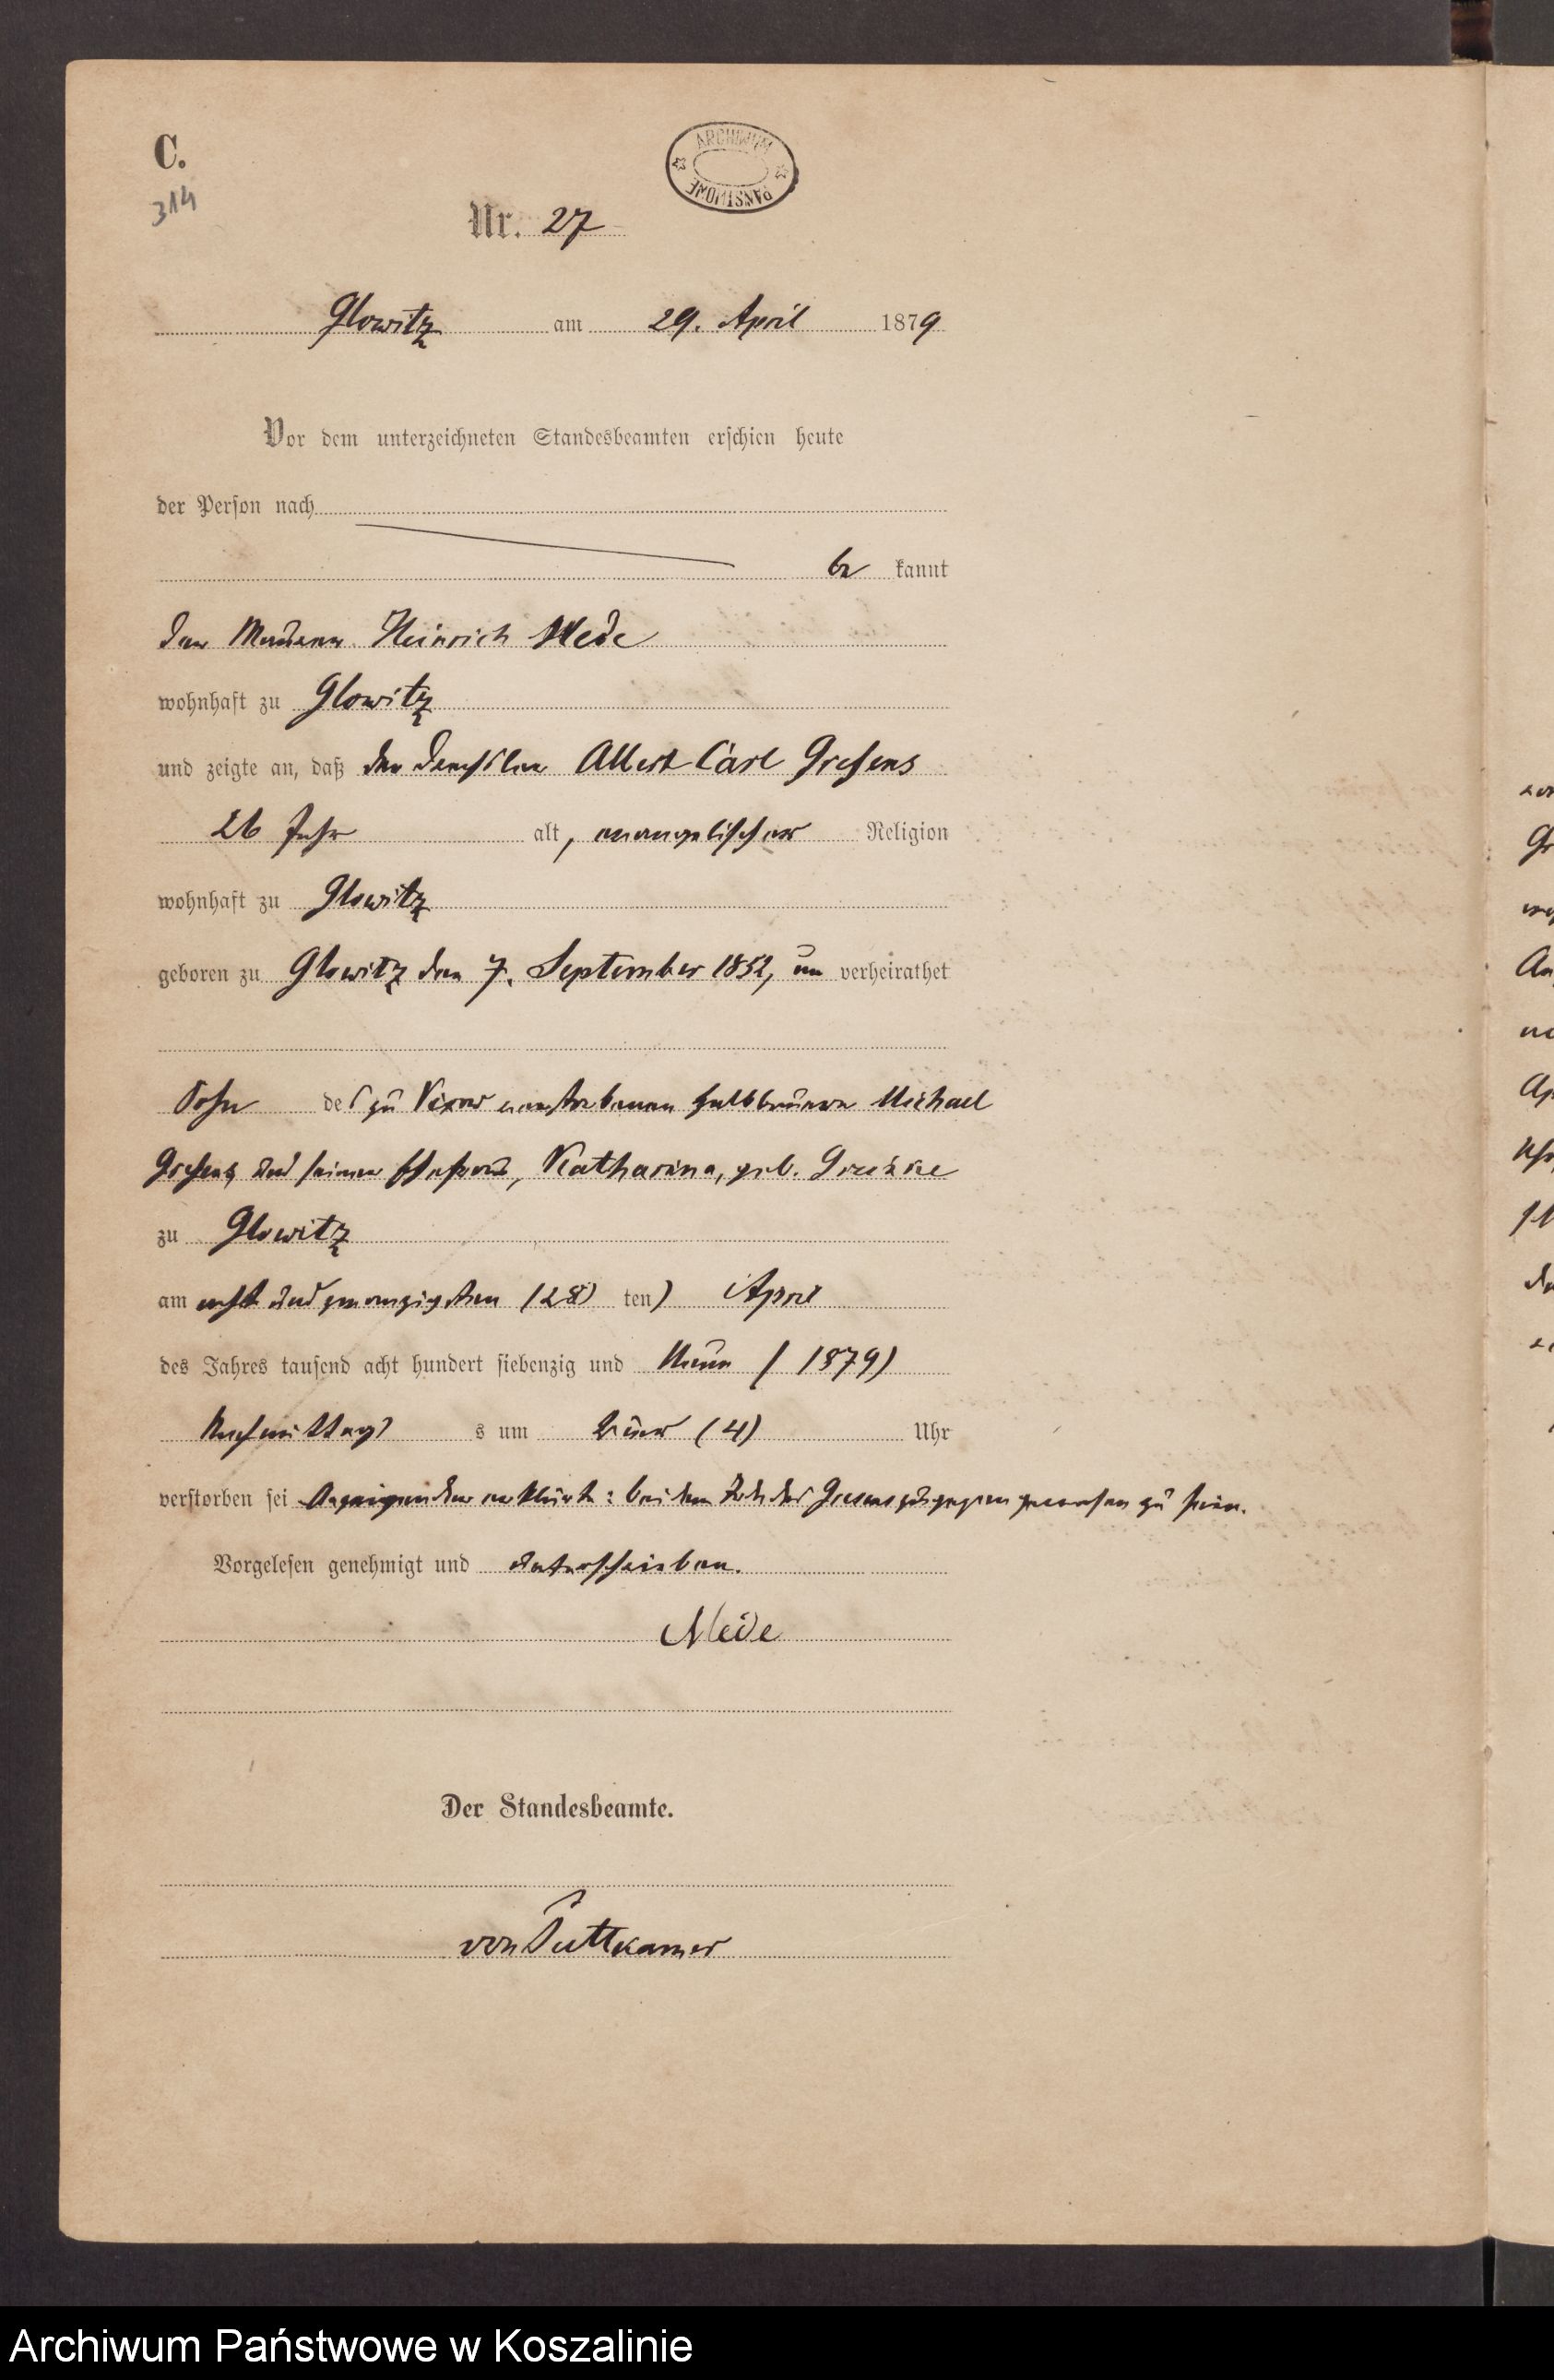 C.
314
ARCHIWUM PAŃSTWOWE
Nr. 27
Glowitz am 29. April 1879
Vor dem unterzeichneten Standesbeamten erschien heute
der Person nach
be kannt
der Maurer Heinrich Mede
wohnhaft zu Glowitz
und zeigte an, daß der Drechsler Albert Carl Gresens
26 Jahr alt, evangelischer Religion
wohnhaft zu Glowitz
geboren zu Glowitz den 7. September 1852, un verheirathet
Sohn des zu Vixow verstorbenen Halbbauern Michael
Gresens und seiner Ehefrau, Katharina, geb.
zu Glowitz
am acht und zwanzigsten (28 ten) April
des Jahres tausend acht hundert siebenzig und Neun (1879)
Nachmittags s um vier (4) Uhr
verstorben sei Anzeigender erklärt: bei dem Tode des Gresens zugegen gewesen zu sein.
Vorgelesen genehmigt und unterschrieben.
Mede
Der Standesbeamte.
von Puttkamer
Archiwum Państwowe w Koszalinie